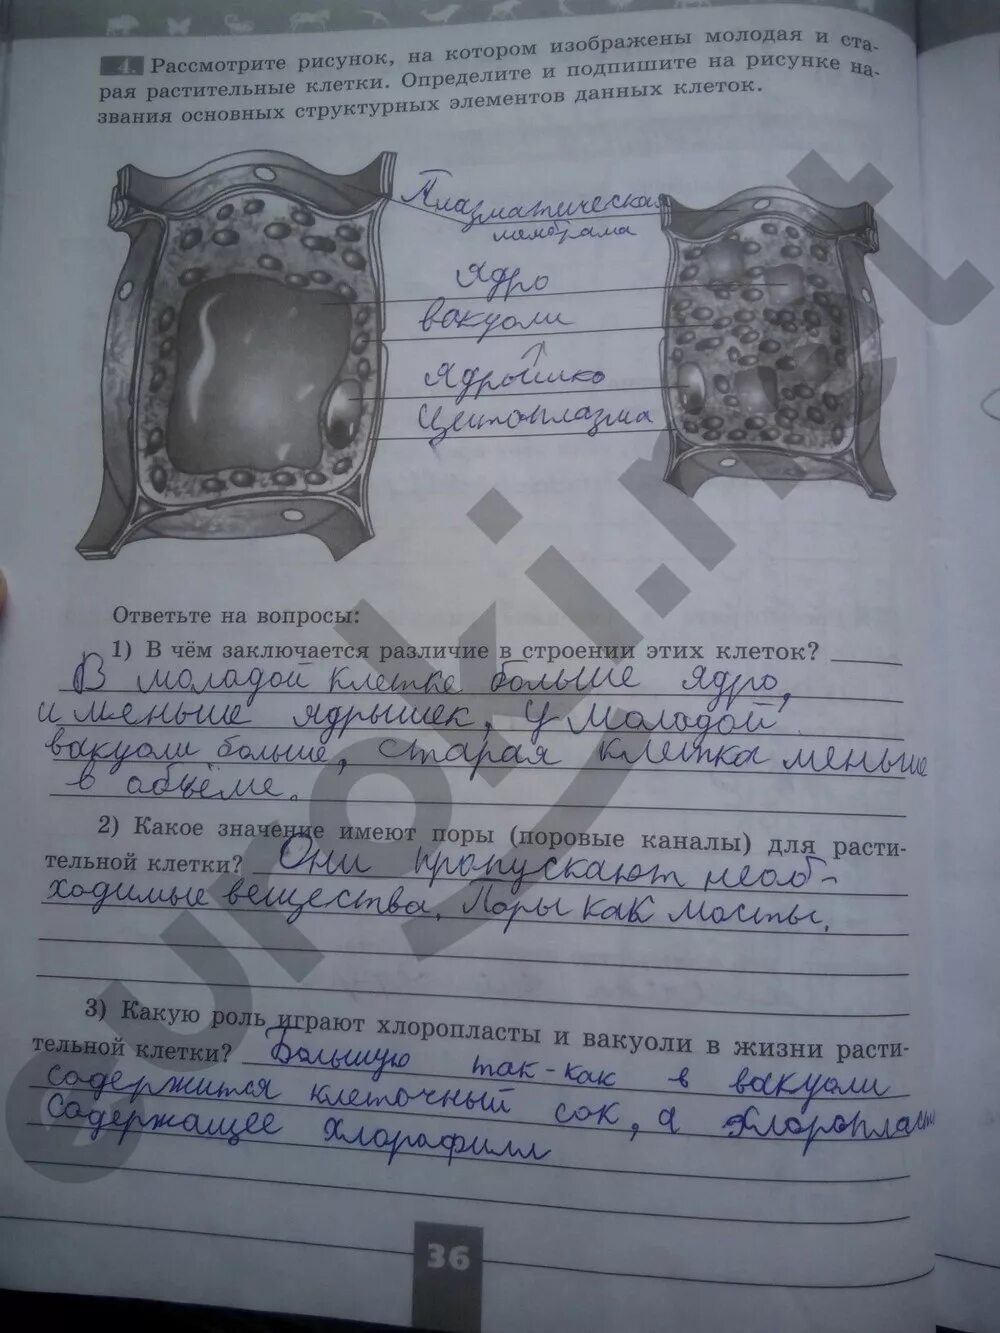 4. Рассмотрите рисунок, на котором изображены молодая и ста-
рая растительные клетки. Определите и подпишите на рисунке на-
звания основных структурных элементов данных клеток.
Плазматическая
мембрама
Ядро
вакуоли
Ядрошко
Цитоплазма
Ответьте на вопросы:
1) В чём заключается различие в строении этих клеток?
В молодой клетке больше ядро,
и меньше ядрышек, у молодой
вакуоли больше, старая клетка меньше
в объёме.
2) Какое значение имеют поры (поровые каналы) для расти-
тельной клетки? Они пропускают необ-
ходимые вещества. Поры как мосты.
3) Какую роль играют хлоропласты и вакуоли в жизни расти-
тельной клетки? Большую так-как в вакуоли
содержится клеточный сок, а хлоропласты
содержащее хлорафилл
36
euroki.net